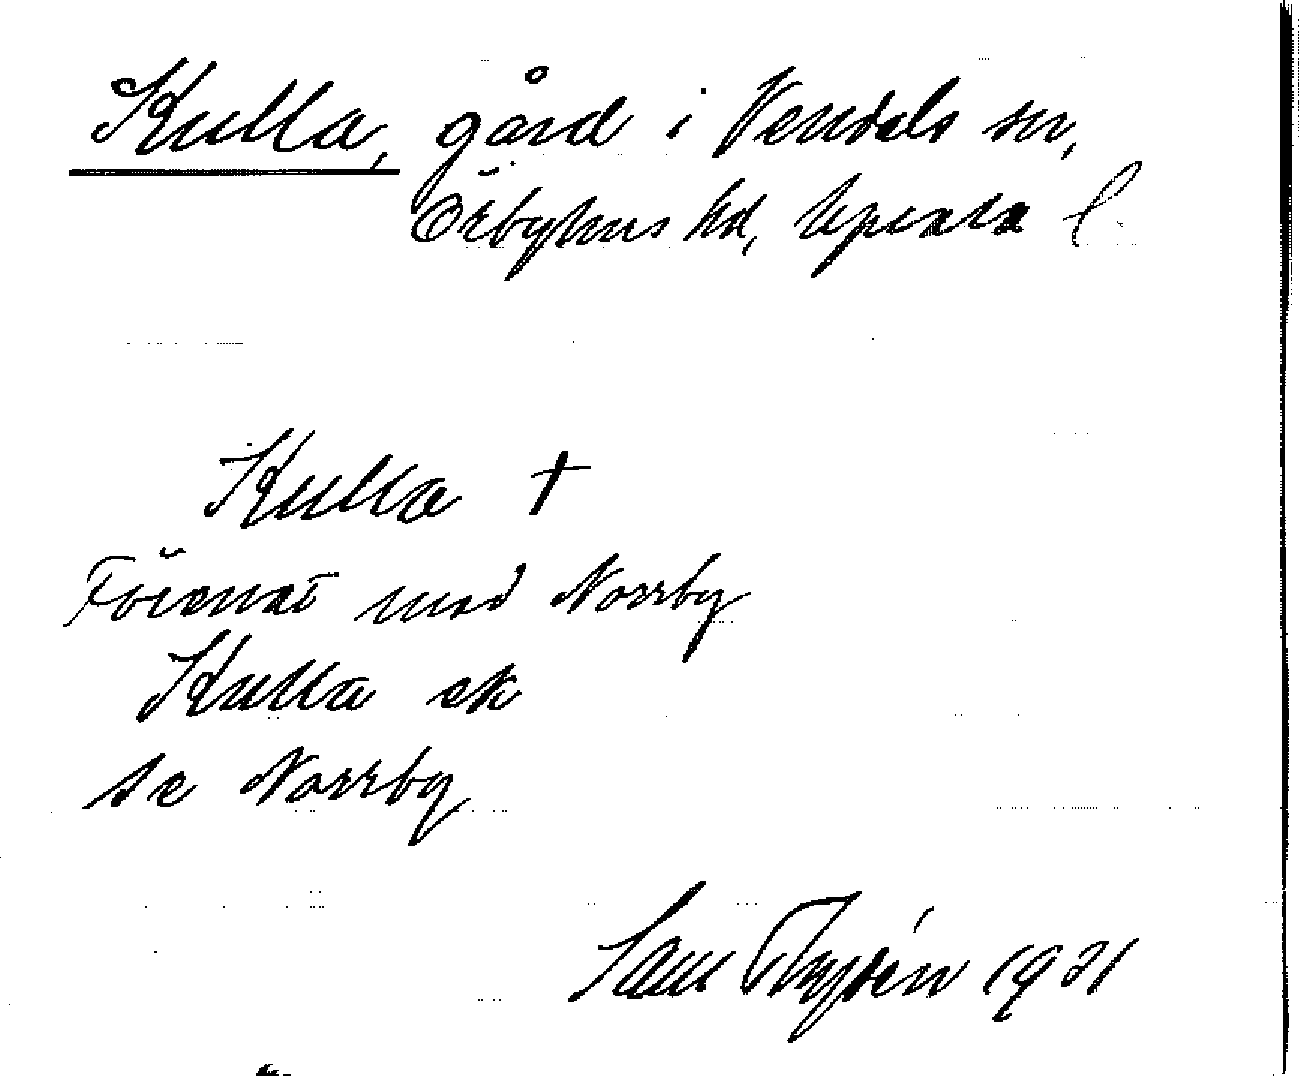 Kulla, gård i Vendels sn,
Örbyhus hd, Upsala l.
Kulla †
Förenat med Norrby
Kulla ek
se Norrby
Sam Thydén 1931